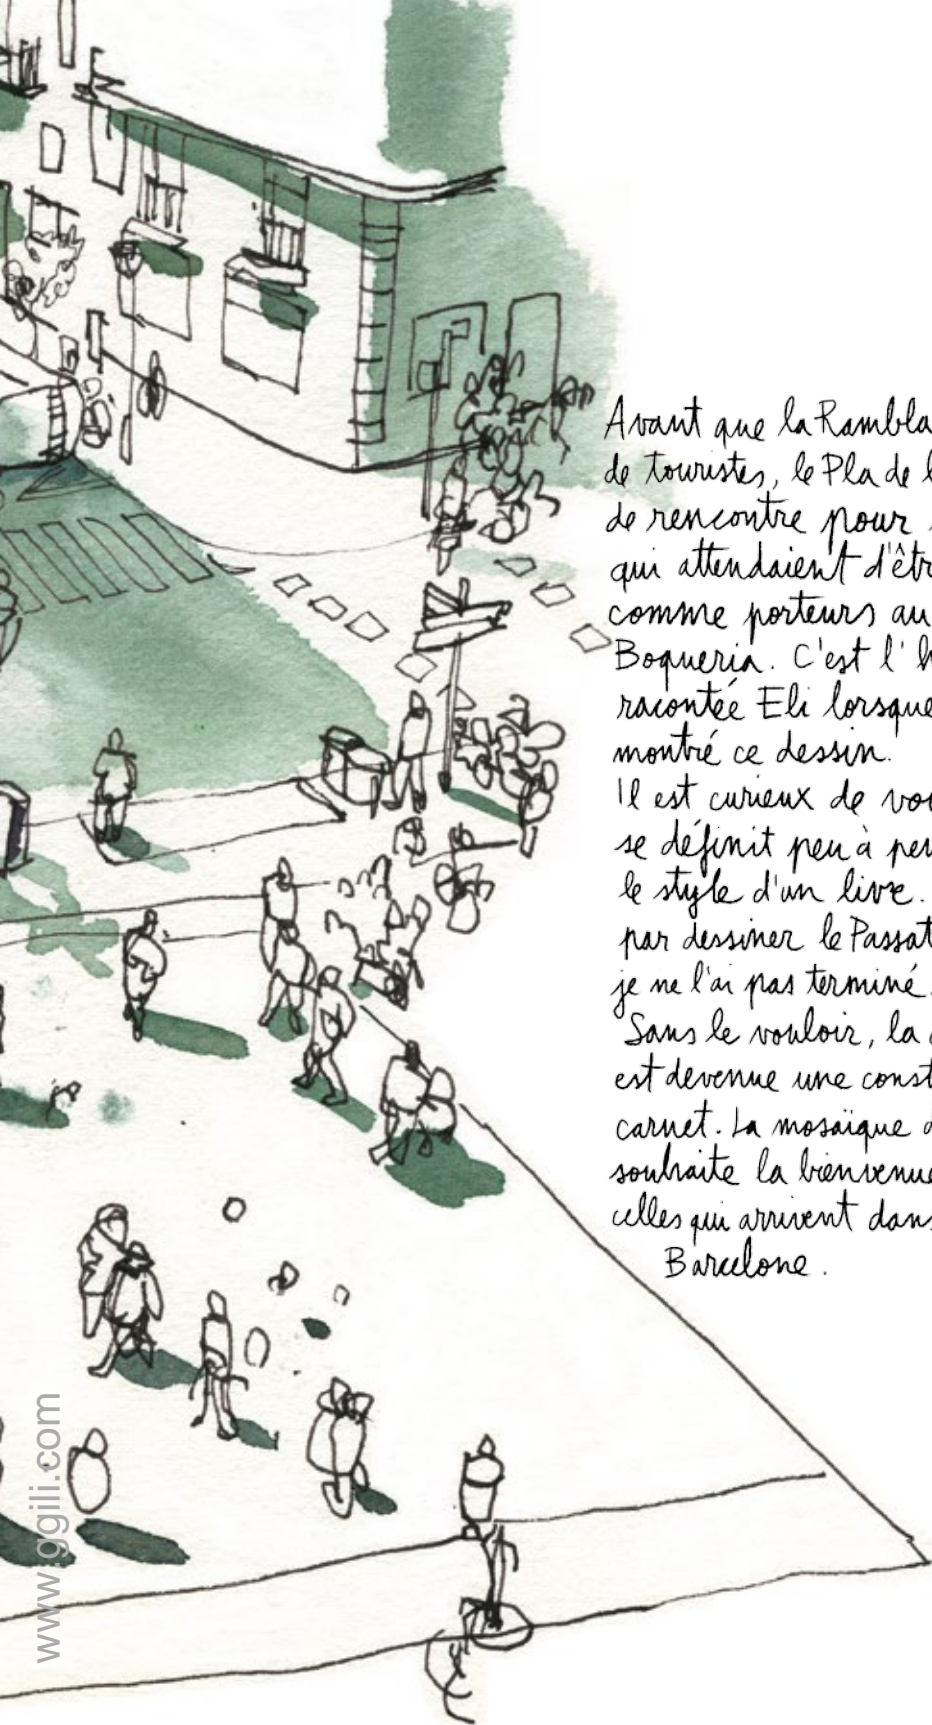 Avant que la Rambla
de touristes, le Pla de l
de rencontre pour
qui attendaient d'êtr
comme porteurs au
Boqueria. C'est l'h
racontée Eli lorsque
montré ce dessin.
Il est curieux de vo
se définit peu à peu
le style d'un livre.
par dessiner le Passat
je ne l'ai pas terminé.
Sans le vouloir, la
est devenue une const
carnet. La mosaïque d
souhaite la bienvenue
celles qui arrivent dans
Barcelone.
www.ggili.com